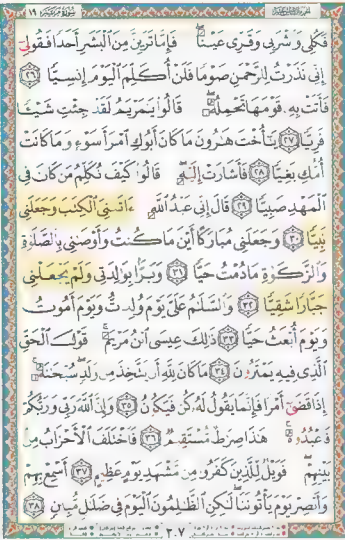 فَكُلِي وَٱشْرَبِي وَقَرِّي عَيْنًا ۖ فَإِمَّا تَرَيِنَّ مِنَ ٱلْبَشَرِ أَحَدًا فَقُولِي
إِنِّي نَذَرْتُ لِلرَّحْمَٰنِ صَوْمًا فَلَنْ أُكَلِّمَ ٱلْيَوْمَ إِنسِيًّا ٢٦
فَأَتَتْ بِهِ قَوْمَهَا تَحْمِلُهُ ۖ قَالُوا يَٰمَرْيَمُ لَقَدْ جِئْتِ شَيْـًٔا
فَرِيًّا ٢٧ يَٰٓأُخْتَ هَٰرُونَ مَا كَانَ أَبُوكِ ٱمْرَأَ سَوْءٍ وَمَا كَانَتْ
أُمُّكِ بَغِيًّا ٢٨ فَأَشَارَتْ إِلَيْهِ ۖ قَالُوا كَيْفَ نُكَلِّمُ مَن كَانَ فِي
ٱلْمَهْدِ صَبِيًّا ٢٩ قَالَ إِنِّي عَبْدُ ٱللَّهِ ءَاتَىٰنِيَ ٱلْكِتَٰبَ وَجَعَلَنِي
نَبِيًّا ٣٠ وَجَعَلَنِي مُبَارَكًا أَيْنَ مَا كُنتُ وَأَوْصَٰنِي بِٱلصَّلَوٰةِ
وَٱلزَّكَوٰةِ مَا دُمْتُ حَيًّا ٣١ وَبَرًّۢا بِوَٰلِدَتِي وَلَمْ يَجْعَلْنِي
جَبَّارًا شَقِيًّا ٣٢ وَٱلسَّلَٰمُ عَلَيَّ يَوْمَ وُلِدتُّ وَيَوْمَ أَمُوتُ
وَيَوْمَ أُبْعَثُ حَيًّا ٣٣ ذَٰلِكَ عِيسَى ٱبْنُ مَرْيَمَ ۚ قَوْلَ ٱلْحَقِّ
ٱلَّذِي فِيهِ يَمْتَرُونَ ٣٤ مَا كَانَ لِلَّهِ أَن يَتَّخِذَ مِن وَلَدٍ ۖ سُبْحَٰنَهُ ۚ
إِذَا قَضَىٰٓ أَمْرًا فَإِنَّمَا يَقُولُ لَهُ كُن فَيَكُونُ ٣٥ وَإِنَّ ٱللَّهَ رَبِّي وَرَبُّكُمْ
فَٱعْبُدُوهُ ۚ هَٰذَا صِرَٰطٌ مُّسْتَقِيمٌ ٣٦ فَٱخْتَلَفَ ٱلْأَحْزَابُ مِنۢ
بَيْنِهِمْ ۖ فَوَيْلٌ لِّلَّذِينَ كَفَرُوا مِن مَّشْهَدِ يَوْمٍ عَظِيمٍ ٣٧ أَسْمِعْ بِهِمْ
وَأَبْصِرْ يَوْمَ يَأْتُونَنَا ۖ لَٰكِنِ ٱلظَّٰلِمُونَ ٱلْيَوْمَ فِي ضَلَٰلٍ مُّبِينٍ ٣٨